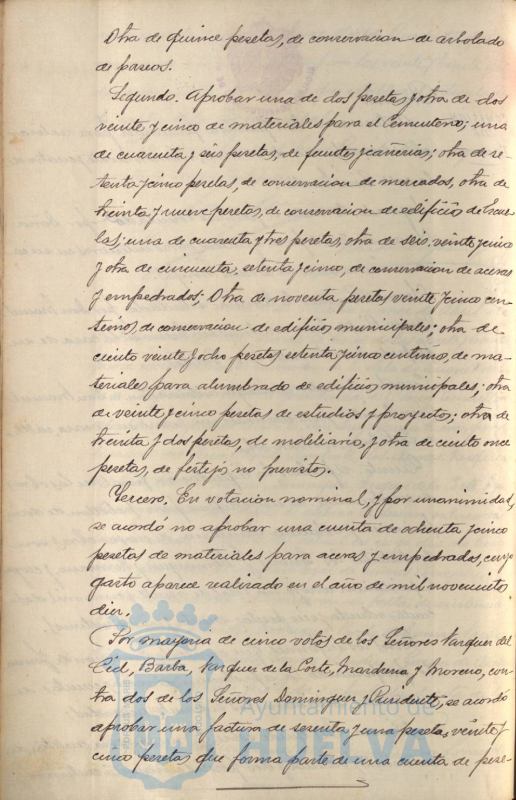 Otra de quince pesetas, de conservacion de arbolado
de paseos.
Segundo. Aprobar una de dos pesetas y otra de dos
veinte y cinco de materiales para el Cementerio; una
de cuarenta y seis pesetas, de fuentes y cañerias; otra de se-
tenta y cinco pesetas, de conservacion de mercados, otra de
treinta y nueve pesetas, de conservacion de edificio de Escue-
las; una de cuarenta y tres pesetas, otra de seis veinte y cinco
y otra de cincuenta, setenta y cinco, de conservacion de aceras
y empedrados; Otra de noventa pesetas veinte y cinco cen-
timos, de conservacion de edificios municipales; otra de
ciento veinte y ocho pesetas setenta y cinco centimos, de ma-
teriales para alumbrado de edificios municipales; otra
de veinte y cinco pesetas de estudios y proyectos; otra de
treinta y dos pesetas, de mobiliario, y otra de ciento once
pesetas, de festejos no previstos.
Tercero. En votacion nominal, y por unanimidad,
se acordó no aprobar una cuenta de ochenta y cinco
pesetas de materiales para aceras y empedrados, cuyo
gasto aparece realizado en el año de mil novecientos
diez.
Por mayoria de cinco votos de los Señores Vazquez del
Cid, Barba, Vazquez de la Corte, y Moreno, con-
tra dos de los Señores Dominguez y se acordó
aprobar una factura de sesenta y una pesetas, veinte y
cinco pesetas que forma parte de una cuenta de pese-
Ayuntamiento de
HUELVA